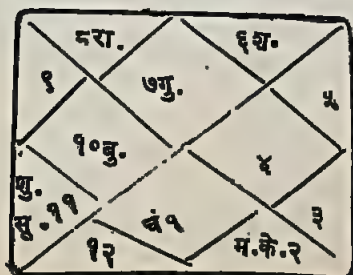 ८रा.
६श.
९
७गु.
५
१०बु.
४
शु.
सू.११
३
१२
चं१
मं.के.२